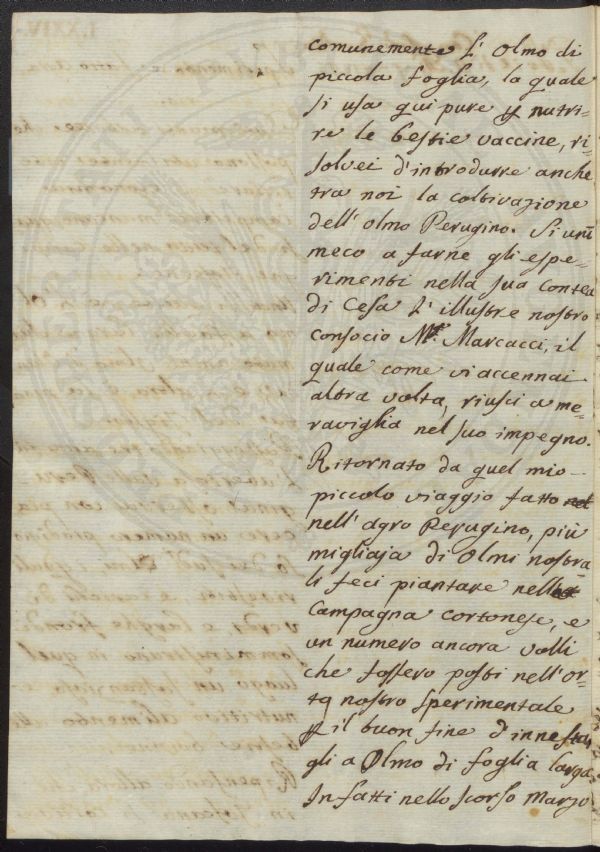 comunemente l'Olmo di
piccola foglia, la quale
si usa qui pure p nutri=
re le bestie vaccine, ri=
solvei d'introdurre anche
tra noi la coltivazione
dell'olmo Perugino. Si unì
meco a farne gli espe=
rimenti nella sua Contea
di Cesa l'illustre nostro
consocio Mr. Marcacci, il
quale come vi accennai
altra volta, riuscì a me=
raviglia nel suo impegno.
Ritornato da quel mio
piccolo viaggio fatto
nell'agro Perugino, più
migliaja di Olmi nostra
li feci piantare nella
Campagna cortonese, e
un numero ancora volli
che fossero posti nell'or=
to nostro sperimentale
p il buon fine d'innestar
gli a Olmo di foglia larga.
Infatti nello scorso Marzo